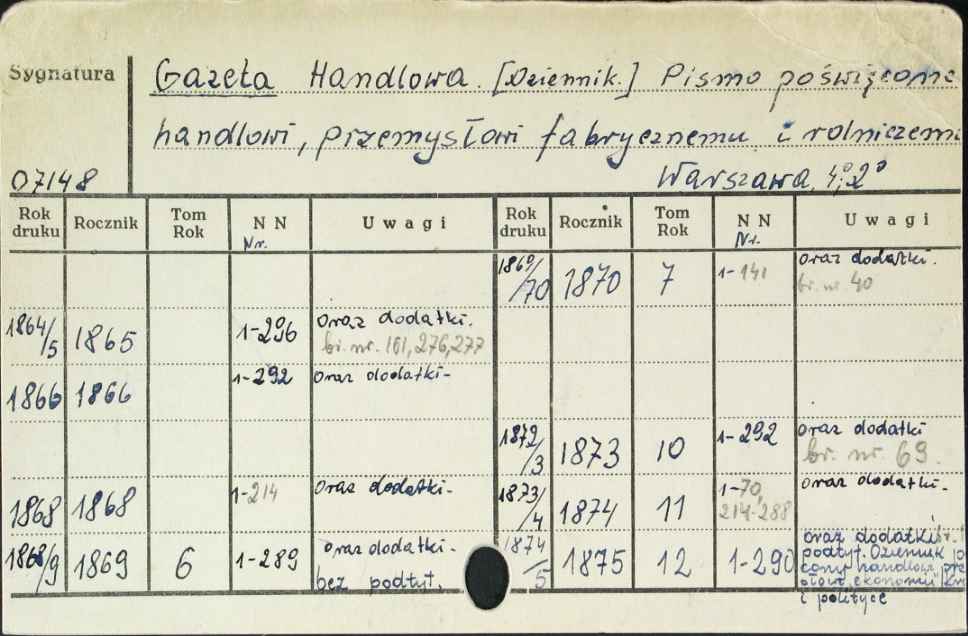 Sygnatura
Gazeta Handlowa. [Dziennik.] Pismo poświęcone
handlowi, przemysłowi fabrycznemu i rolniczemu
07148
Warszawa, 4°, 2°
Rok druku Rocznik Tom Rok NN Nr. Uwagi Rok druku Rocznik Tom Rok NN Nr. Uwagi
1869/70 1870 7 1-141 oraz dodatki. br. nr 40
1864/5 1865 1-296 oraz dodatki. br. nr. 161, 276, 277
1866 1866 1-292 oraz dodatki-
1872/3 1873 10 1-292 oraz dodatki br. nr. 69.
1868 1868 1-214 oraz dodatki- 1873/4 1874 11 1-70, 214-288 oraz dodatki-
1868/9 1869 6 1-289 oraz dodatki- bez podtyt. 1874/5 1875 12 1-290 oraz dodatki
podtyt. Dziennik
handlowi
ekonomii
i polityce